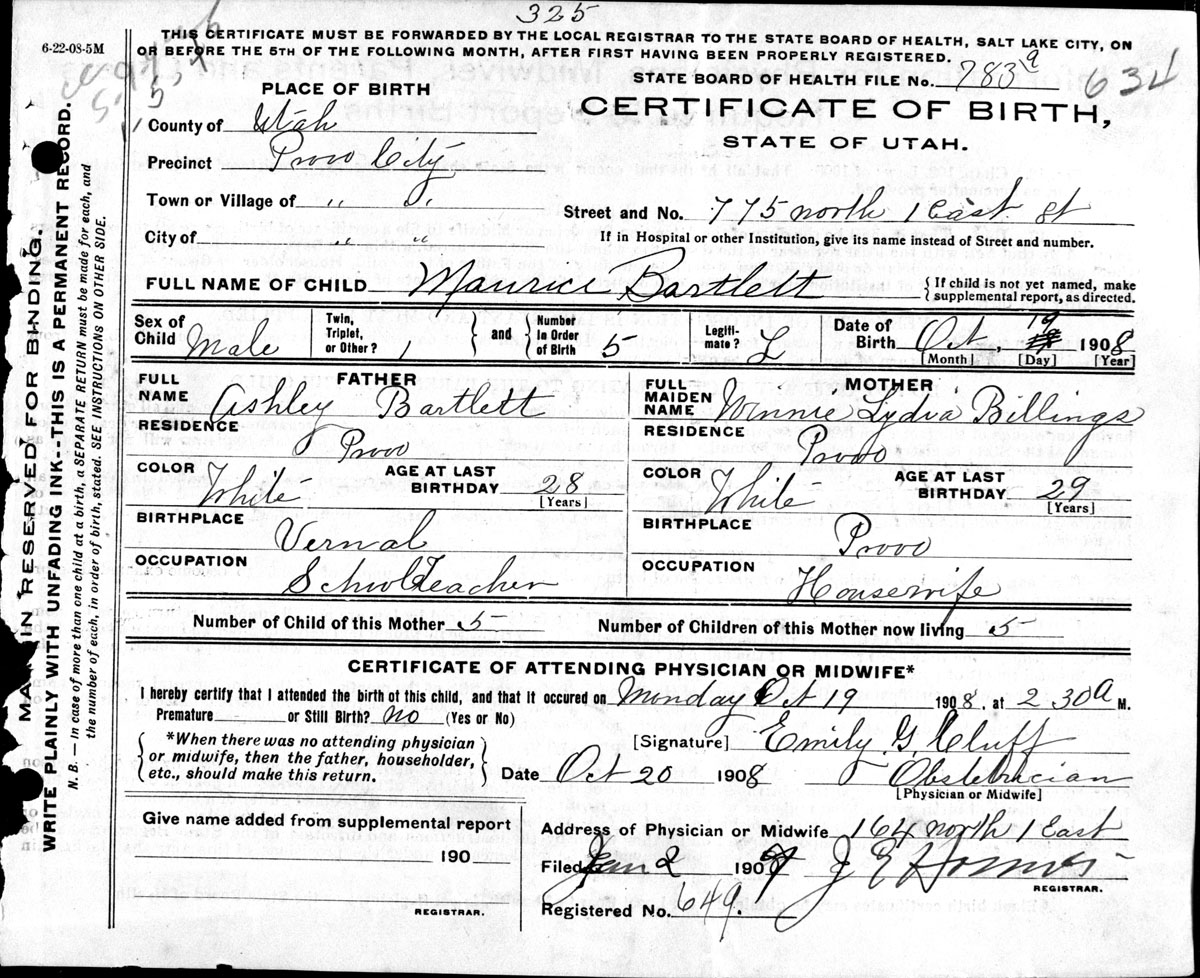 325
6-22-08-5M
THIS CERTIFICATE MUST BE FORWARDED BY THE LOCAL REGISTRAR TO THE STATE BOARD OF HEALTH, SALT LAKE CITY, ON
OR BEFORE THE 5TH OF THE FOLLOWING MONTH, AFTER FIRST HAVING BEEN PROPERLY REGISTERED.
STATE BOARD OF HEALTH FILE No. 783 a 634
PLACE OF BIRTH
CERTIFICATE OF BIRTH,
STATE OF UTAH.
County of Utah
Precinct Provo City
Town or Village of " "
Street and No. 775 north 1 East st
City of " "
If in Hospital or other Institution, give its name instead of Street and number.
FULL NAME OF CHILD Maurice Bartlett
{ If child is not yet named, make
supplemental report, as directed.
Sex of Child Male
Twin, Triplet, or Other? 1
and
Number in Order of Birth 5
Legiti-mate? L
Date of Birth Oct. 19 1908
[Month] [Day] [Year]
FATHER
FULL NAME Ashley Bartlett
RESIDENCE Provo
COLOR White
AGE AT LAST BIRTHDAY 28
[Years]
BIRTHPLACE Vernal
OCCUPATION School Teacher
MOTHER
FULL MAIDEN NAME Winnie Lydia Billings
RESIDENCE Provo
COLOR White
AGE AT LAST BIRTHDAY 29
[Years]
BIRTHPLACE Provo
OCCUPATION Housewife
Number of Child of this Mother 5 Number of Children of this Mother now living 5
CERTIFICATE OF ATTENDING PHYSICIAN OR MIDWIFE*
I hereby certify that I attended the birth of this child, and that it occured on Monday Oct 19 1908, at 2 30a M.
Premature or Still Birth? No (Yes or No)
*When there was no attending physician
or midwife, then the father, householder,
etc., should make this return.
[Signature] Emily G. Cluff
Date Oct 20 1908 Obstetrician
[Physician or Midwife]
Give name added from supplemental report
190
REGISTRAR.
Address of Physician or Midwife 164 north 1 East
Filed Jan 2 190 J E
REGISTRAR.
Registered No. 649.
RESERVED FOR BINDING.
WRITE PLAINLY WITH UNFADING INK-THIS IS A PERMANENT RECORD.
N. B. — In case of more than one child at a birth, a SEPARATE RETURN must be made for each, and
the number of each, in order of birth, stated. SEE INSTRUCTIONS ON OTHER SIDE.